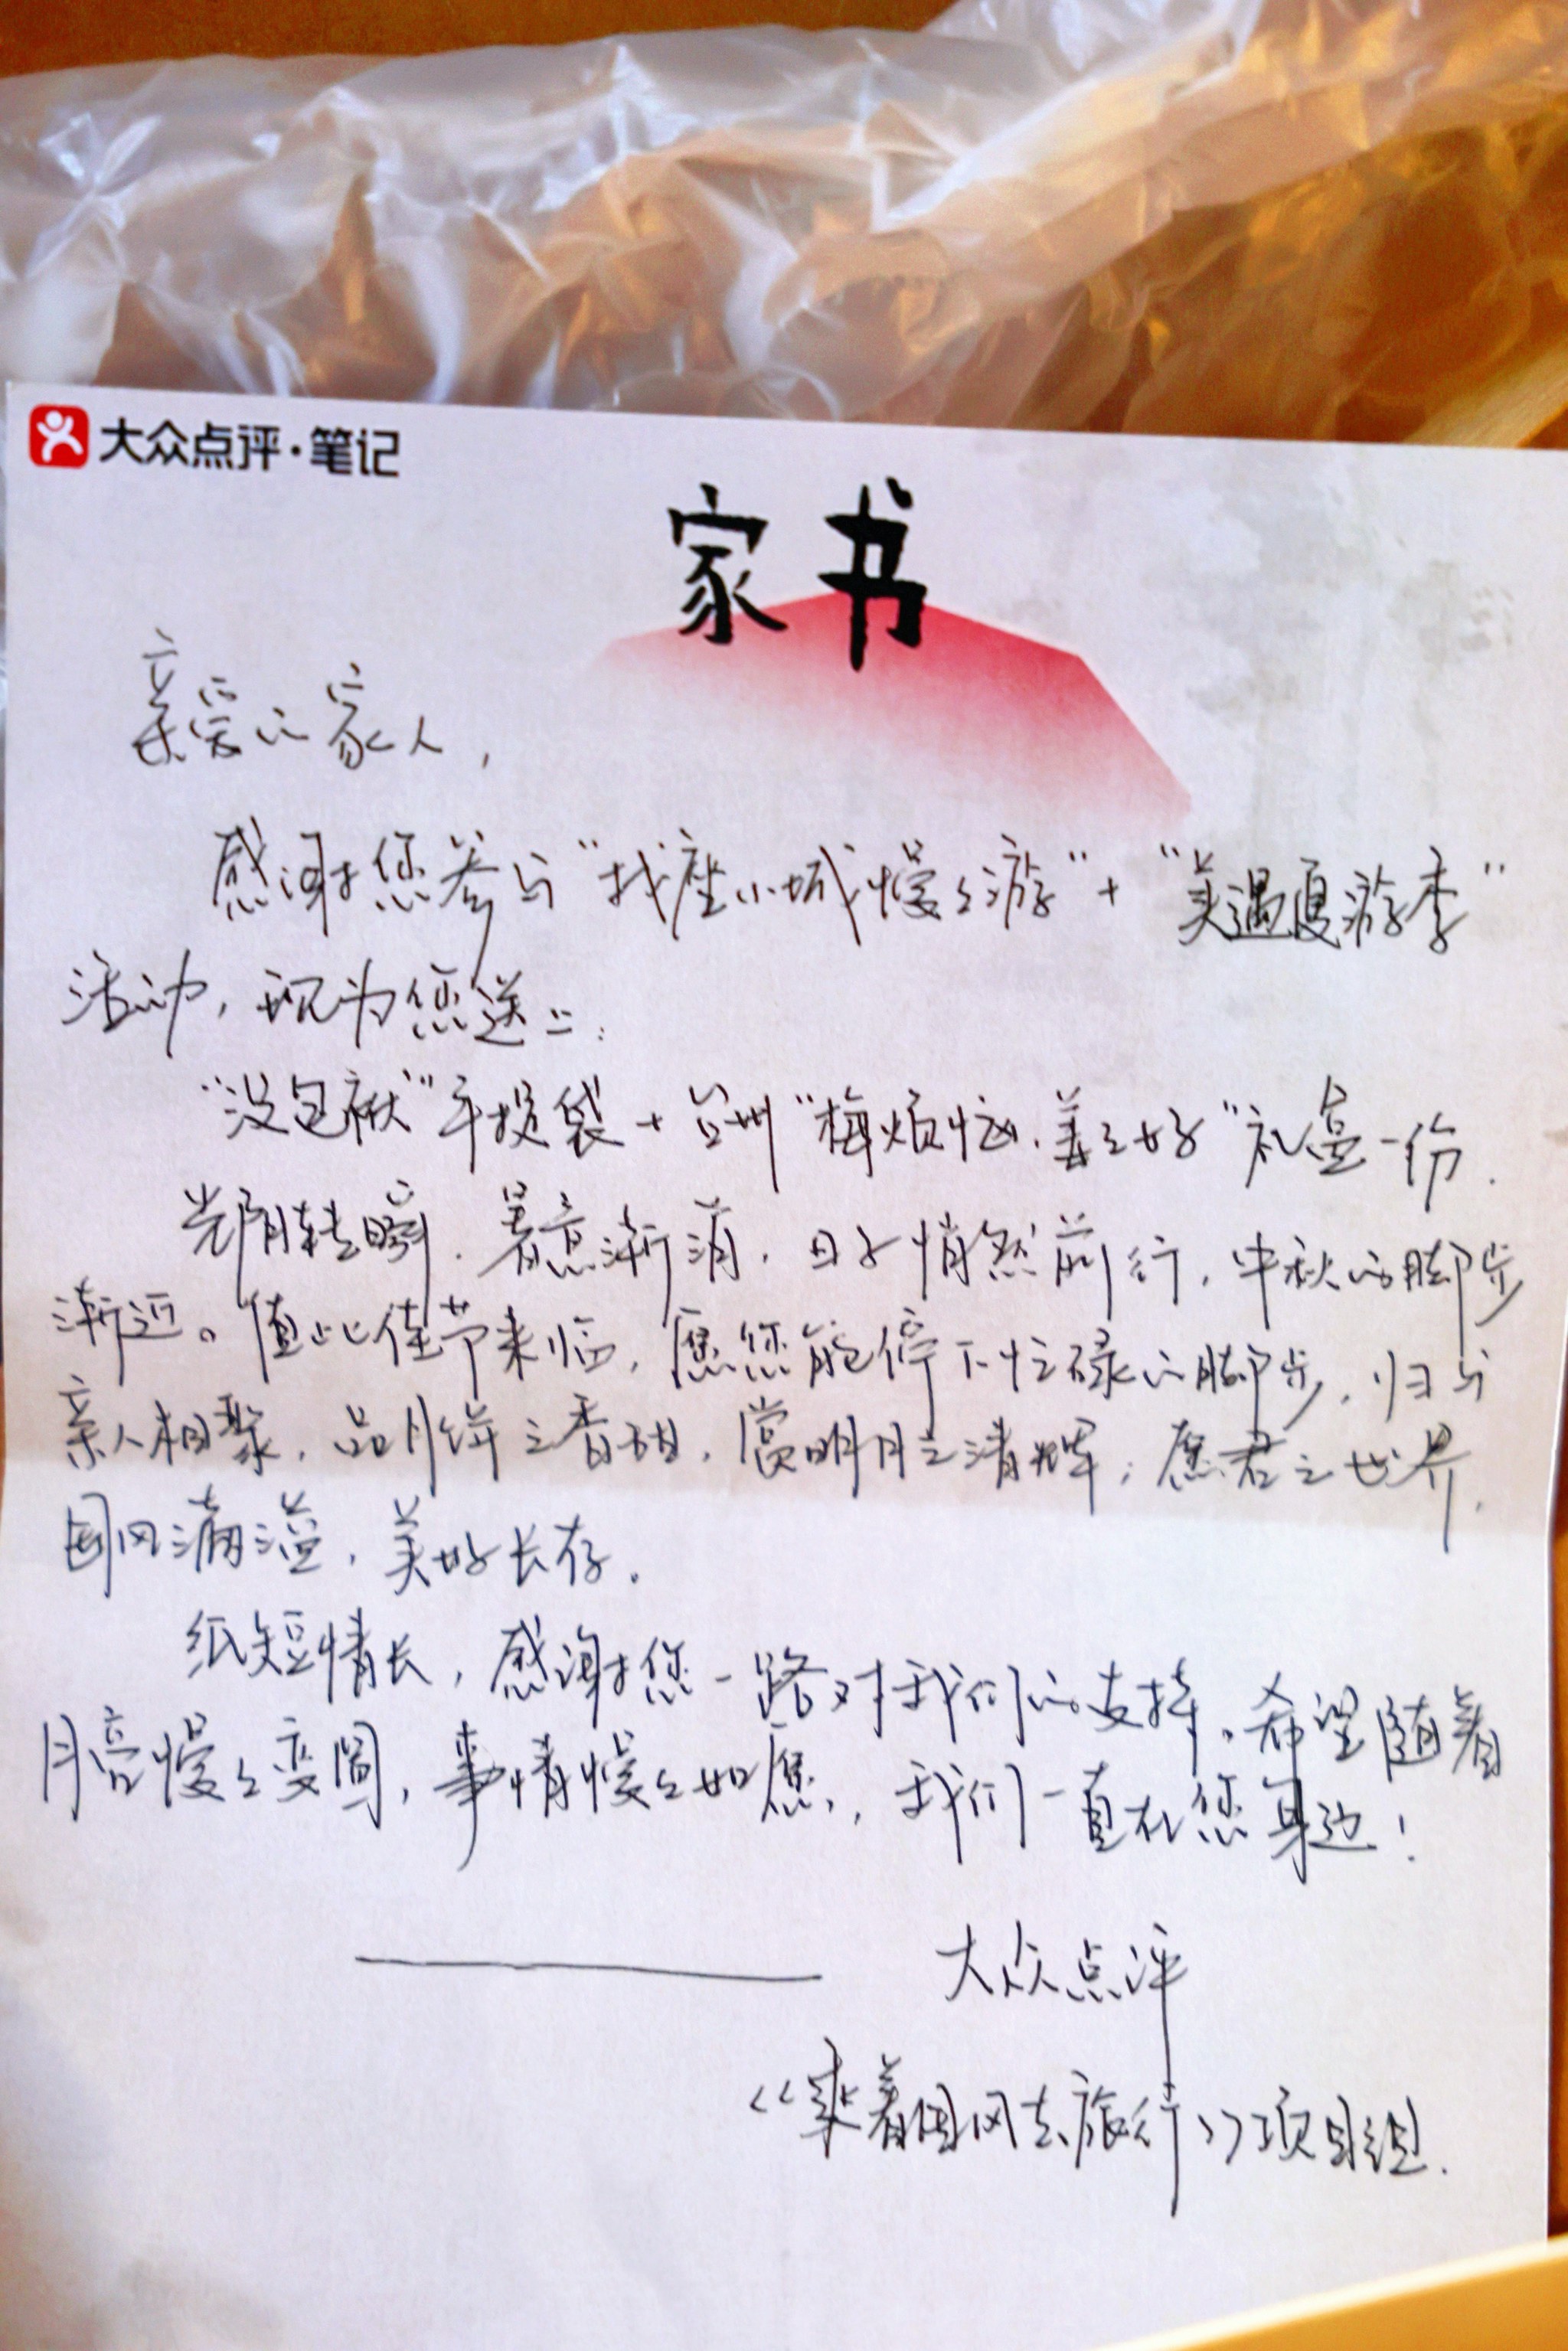 大众点评·笔记
家书
亲爱的家人，
感谢您参与“找座小城慢慢游”+“美遇夏游季”
活动，现为您送上：
“没包袱”手提袋+台州“梅烦恼，美之好”礼盒一份.
光阴转瞬，暑意渐消，日子悄然前行，中秋的脚步
渐近。值此佳节来临，愿您能停下忙碌的脚步，归与
亲人相聚，品月饼之香甜，赏明月之清辉；愿君之世界，
国风满溢，美好长存。
纸短情长，感谢您一路对我们的支持。希望随着
月亮慢慢变圆，事情慢慢如愿，我们一直在您身边！
大众点评
《乘着国风去旅行》项目组.